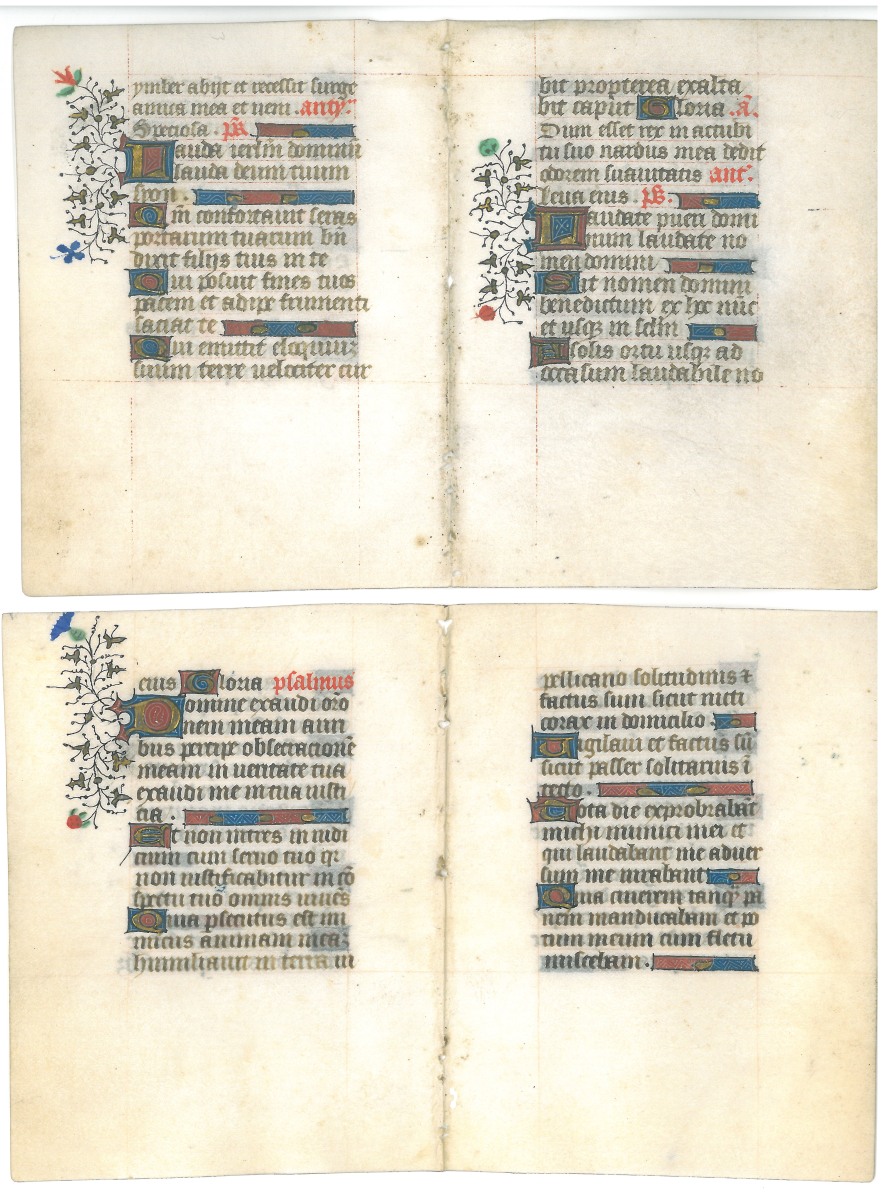 ymber abijt et recessit surge
amica mea et veni . anty
Speciosa . ps
Lauda ierlm dominum
lauda deum tuum
syon .
Qm confortauit seras
portarum tuarum bn
dixit filijs tuis in te
Qui posuit fines tuos
pacem et adipe frumenti
saciat te
Qui emittit eloquium
suum terre uelociter cur
bit propterea exalta
bit caput Gloria . a
Dum esset rex in accubi
tu suo nardus mea dedit
odorem suauitatis ant
leua eius . ps
Laudate pueri domi
num laudate no
men domini
Sit nomen domini
benedictum ex hoc nuc
et usq in sclm
A solis ortu usq ad
occasum laudabile no
eius Gloria psalmus
Domine exaudi oro
nem meam auri
bus percipe obsecratione
meam in ueritate tua
exaudi me in tua iusti
cia .
Et non intres in iudi
cium cum seruo tuo qr
non iustificabitur in co
spectu tuo omnis uiues
Quia psecutus est ini
micus animam mea
humiliauit in terra ui
pellicano solitudinis &
factus sum sicut nicti
corax in domicilio .
Uigilaui et factus su
sicut passer solitarius i
tecto .
Tota die exprobrabat
michi inimici mei et
qui laudabant me aduer
sum me iurabant
Quia cinerem tanq pa
nem manducabam et po
tum meum cum fletu
miscebam .